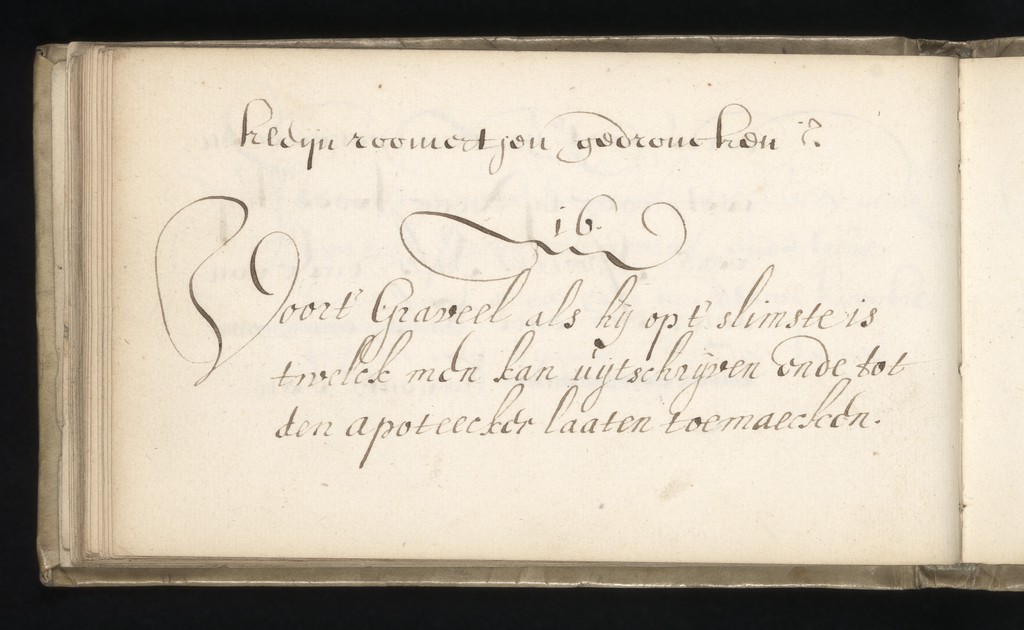 kleijn roomertjen gedroncken is.
16.
Voort Graveel als hij opt slimste is
twelck men kan uijtschrijven ende tot
den apoteecker laaten toemaecken.